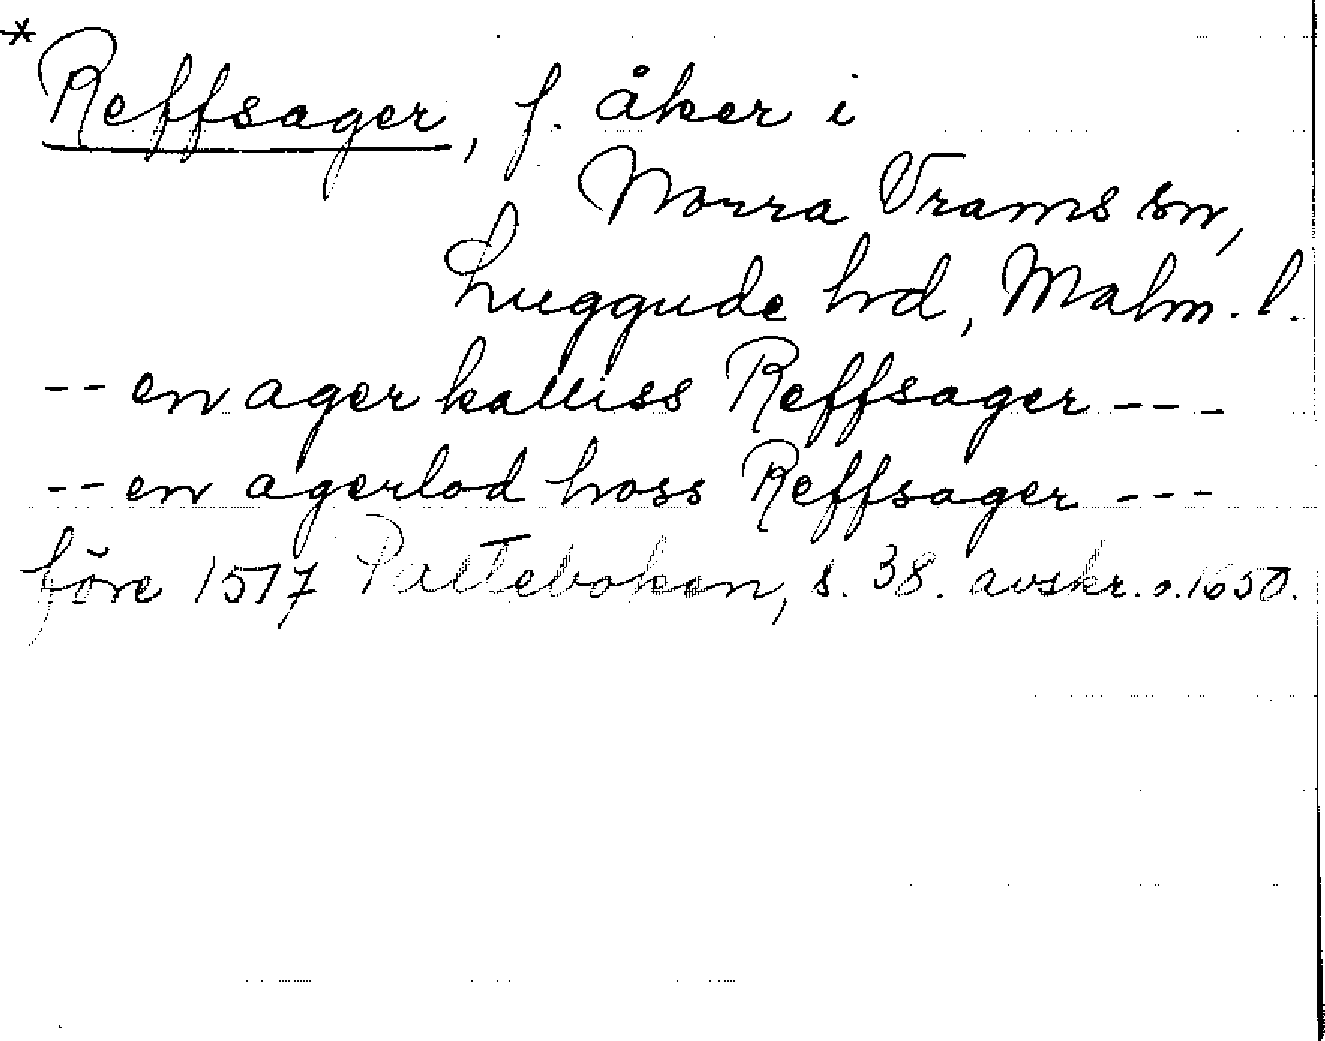 * Reffsager, f. åker i
Norra Vrams sn,
Luggude hd, Malm. l.
-- en ager kalliss Reffsager ---
-- en agerlod hoss Reffsager ---
före 1517 Paltebokon, s. 38. avskr. o. 1650.